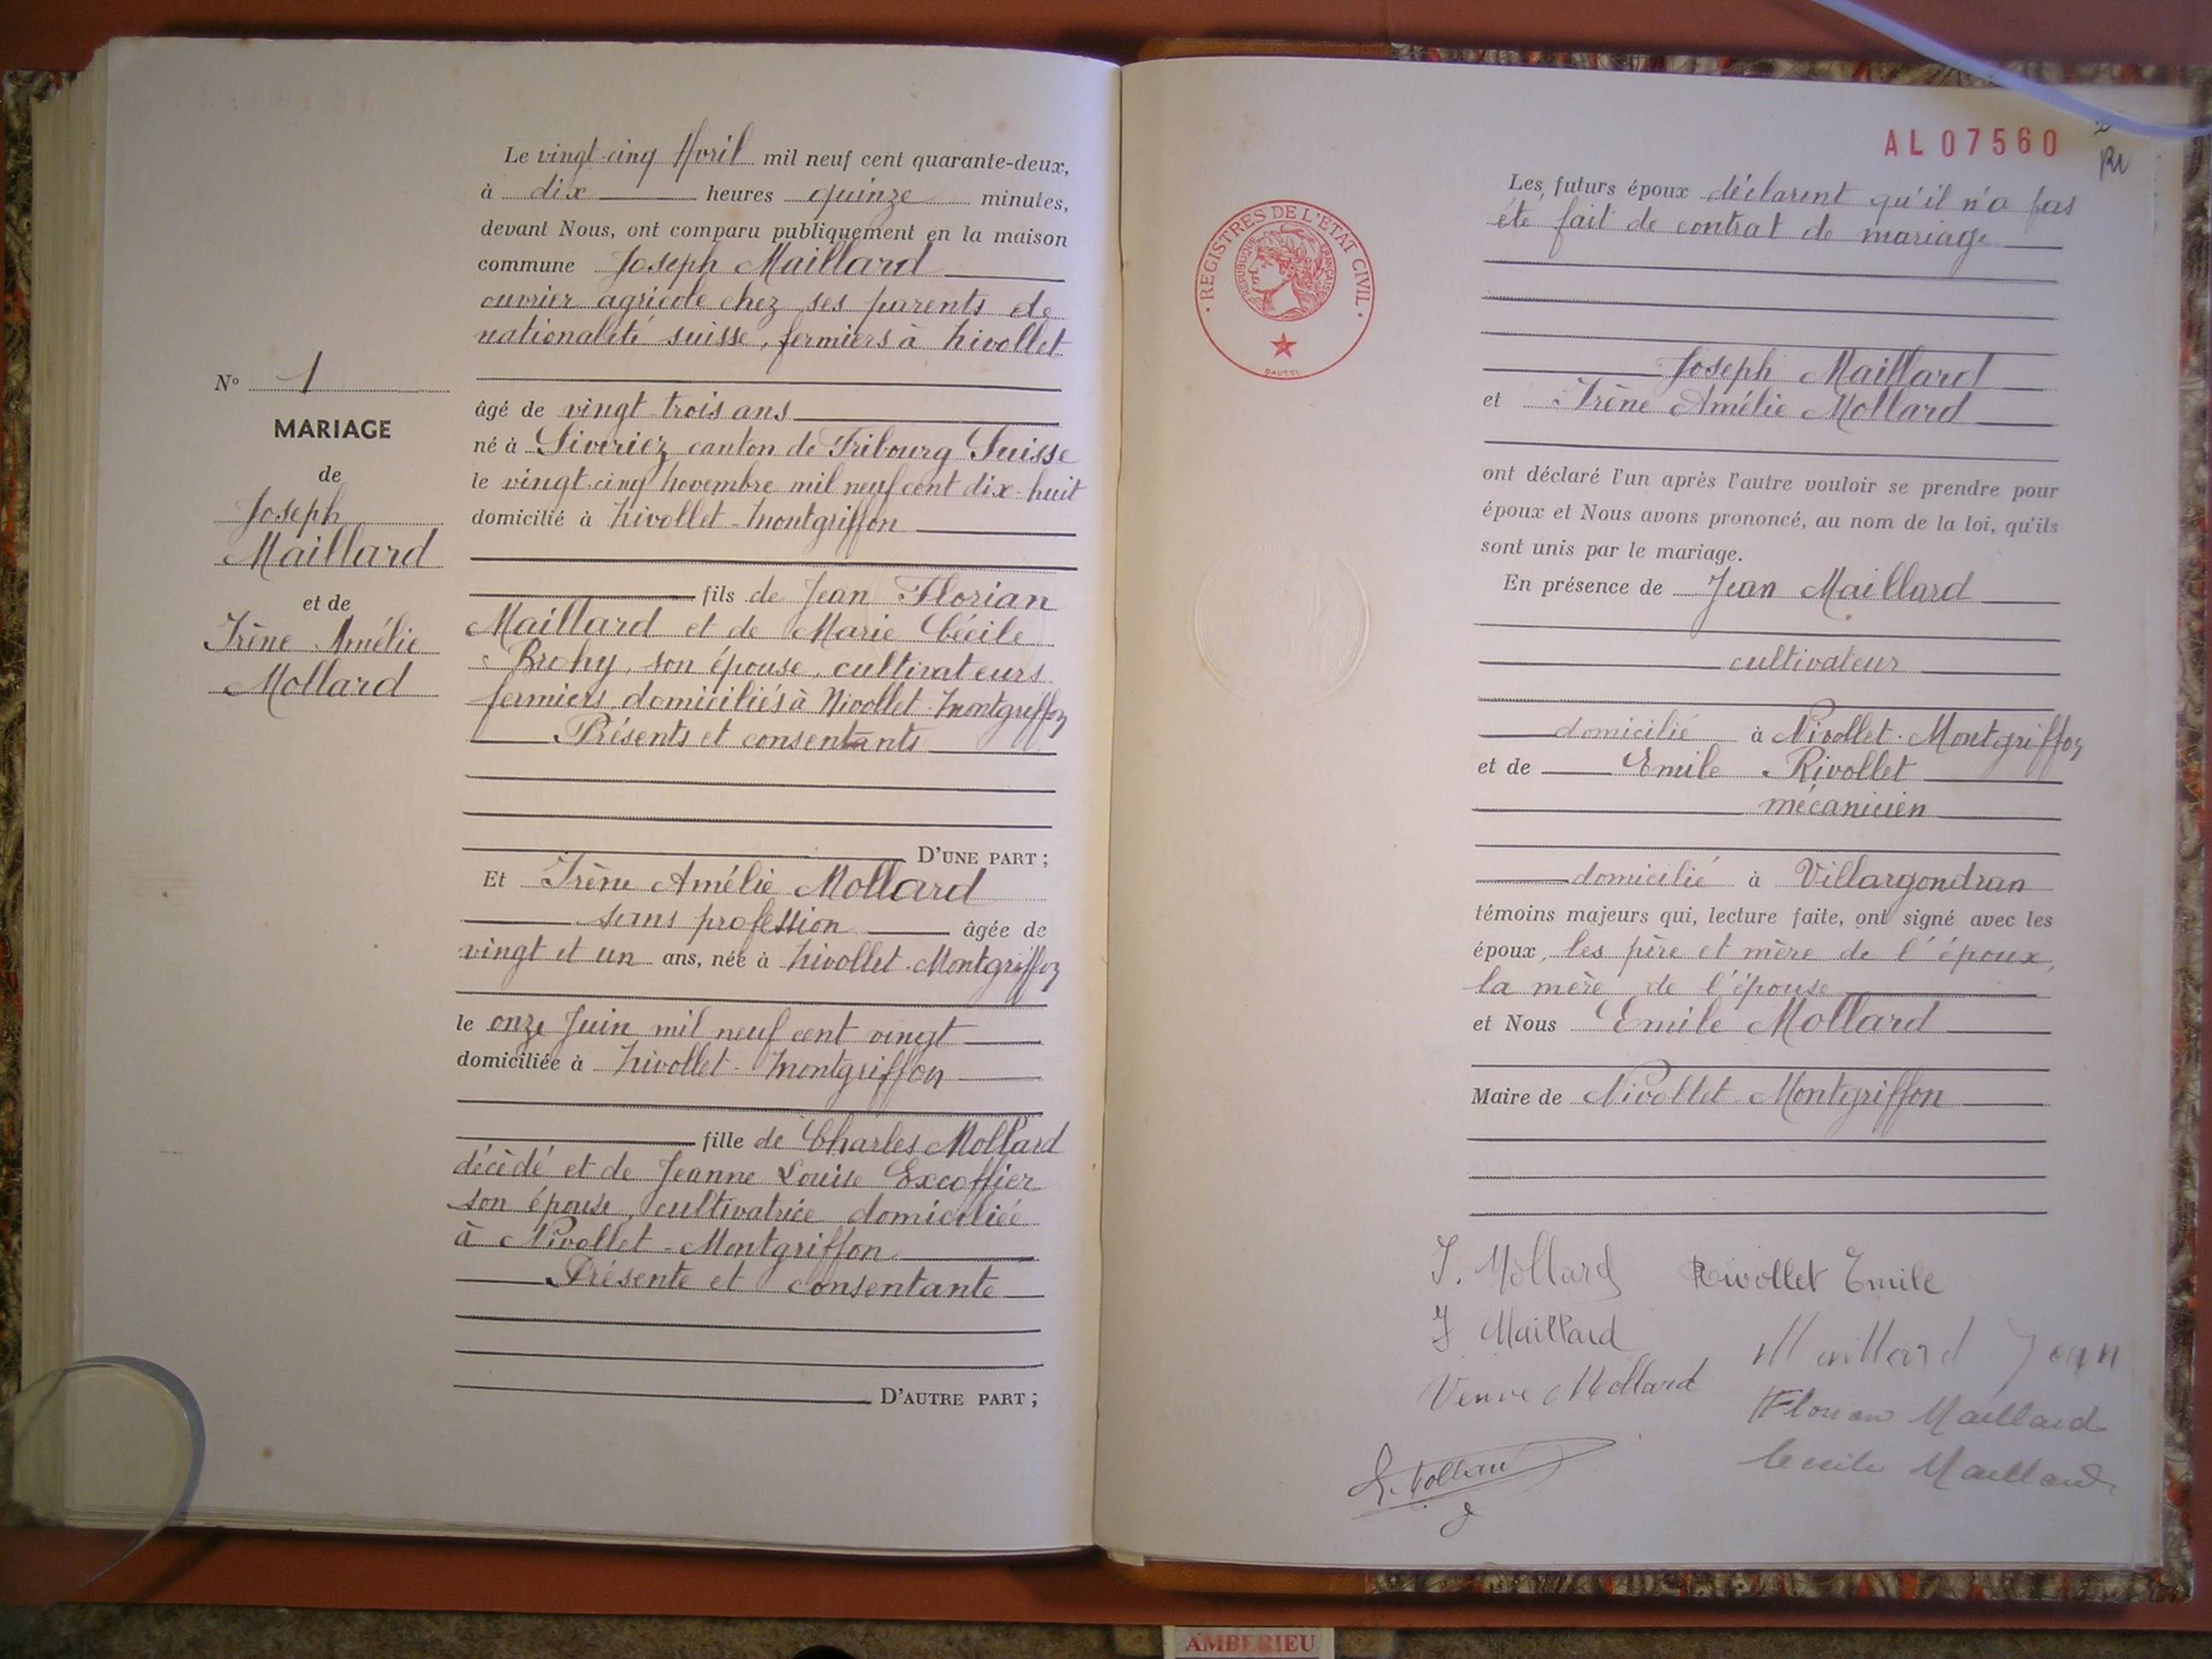 Le vingt-cinq Avril mil neuf cent quarante-deux,
à dix heures quinze minutes,
devant Nous, ont comparu publiquement en la maison
commune Joseph Maillard
ouvrier agricole chez ses parents de
nationalité suisse, fermiers à Nivollet
âgé de vingt trois ans
né à Siviriez canton de Fribourg Suisse
le vingt-cinq Novembre mil neuf cent dix-huit
domicilié à Nivollet-Montgriffon
fils de Jean Florian
Maillard et de Marie Cécile
Brohy, son épouse, cultivateurs
fermiers, domiciliés à Nivollet-Montgriffon
Présents et consentants
D'UNE PART ;
Et Irène Amélie Mollard
sans profession âgée de
vingt et un ans, née à Nivollet-Montgriffon
le onze Juin mil neuf cent vingt
domiciliée à Nivollet-Montgriffon
fille de Charles Mollard
décédé et de Jeanne Louise Excoffier
son épouse, cultivatrice domiciliée
à Nivollet-Montgriffon
Présente et consentante
D'AUTRE PART ;
N° 1
MARIAGE
de
Joseph
Maillard
et de
Irène Amélie
Mollard
AL 07560
REGISTRES DE L'ETAT CIVIL
REPUBLIQUE FRANÇAISE
Les futurs époux déclarent qu'il n'a pas
été fait de contrat de mariage
Joseph Maillard
et Irène Amélie Mollard
ont déclaré l'un après l'autre vouloir se prendre pour
époux et Nous avons prononcé, au nom de la loi, qu'ils
sont unis par le mariage.
En présence de Jean Maillard
cultivateur
domicilié à Nivollet-Montgriffon
et de Emile Rivollet
mécanicien
domicilié à Villargondran
témoins majeurs qui, lecture faite, ont signé avec les
époux, les père et mère de l'époux,
la mère de l'épouse
et Nous Emile Mollard
Maire de Nivollet-Montgriffon
I. Mollard Rivollet Emile
J Maillard Maillard Jean
Veuve Mollard Florian Maillard
Cecile Maillard
E. Mollard
AMBERIEU